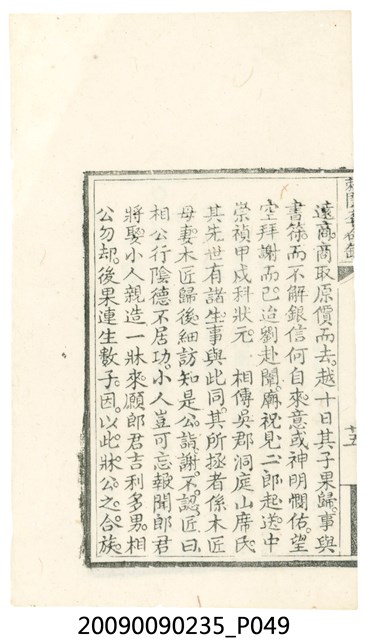 遠商商取原價而去越十日其子果歸事與
書符而不解銀信何自來意或神明憫佑望
空拜謝而已迨劉赴闈廟祝見二郎起送中
崇禎甲戌科狀元 相傳吳郡洞庭山席氏
其先世有諸生事與此同其所拯者係木匠
母妻木匠歸後細訪知是公詣謝不認匠曰
相公行陰德不居功小人豈可忘報聞郎君
將娶小人親造一牀來願郎君吉利多男相
公勿却後果連生數子因以此牀公之合族
廿五
20090090235_P049